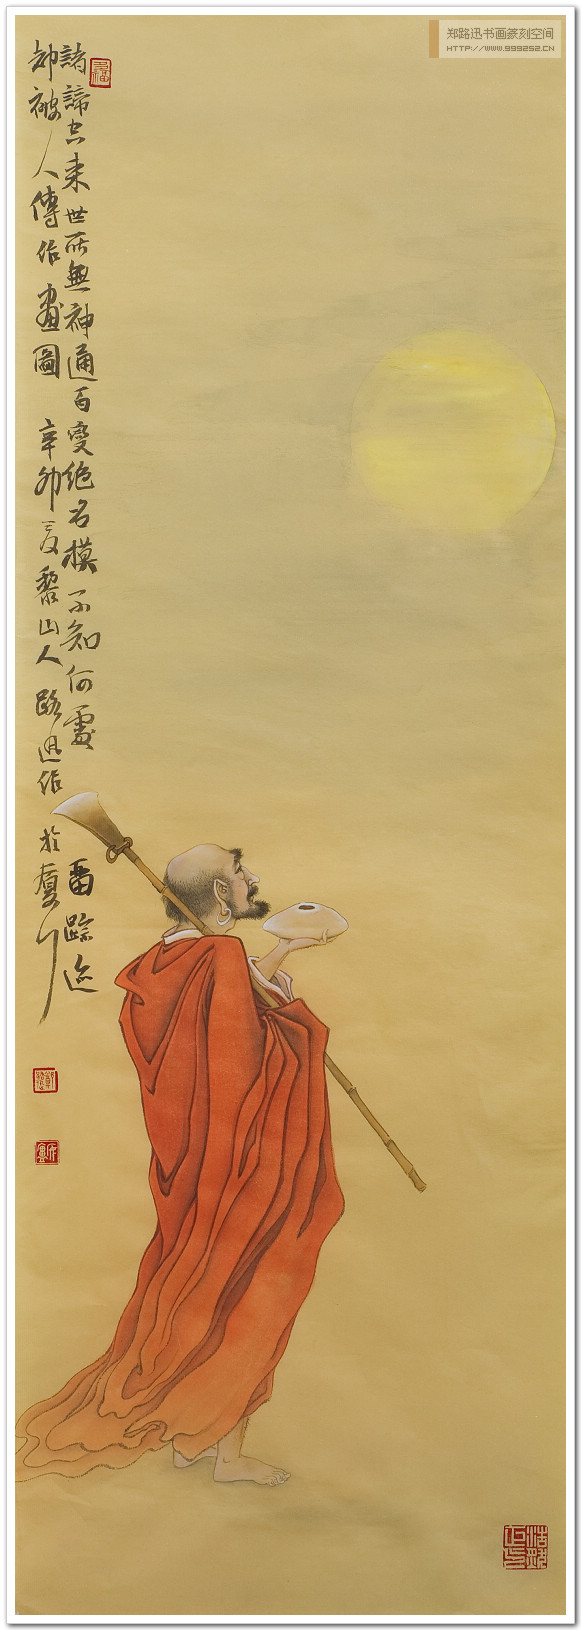 郑路迅书画篆刻空间
HTTP://WWW.999252.CN
諸諦空来世所無神通百變絶名模不知何處留踪迹
却被人傳作畫圖 辛卯夏黎山人路迅作於